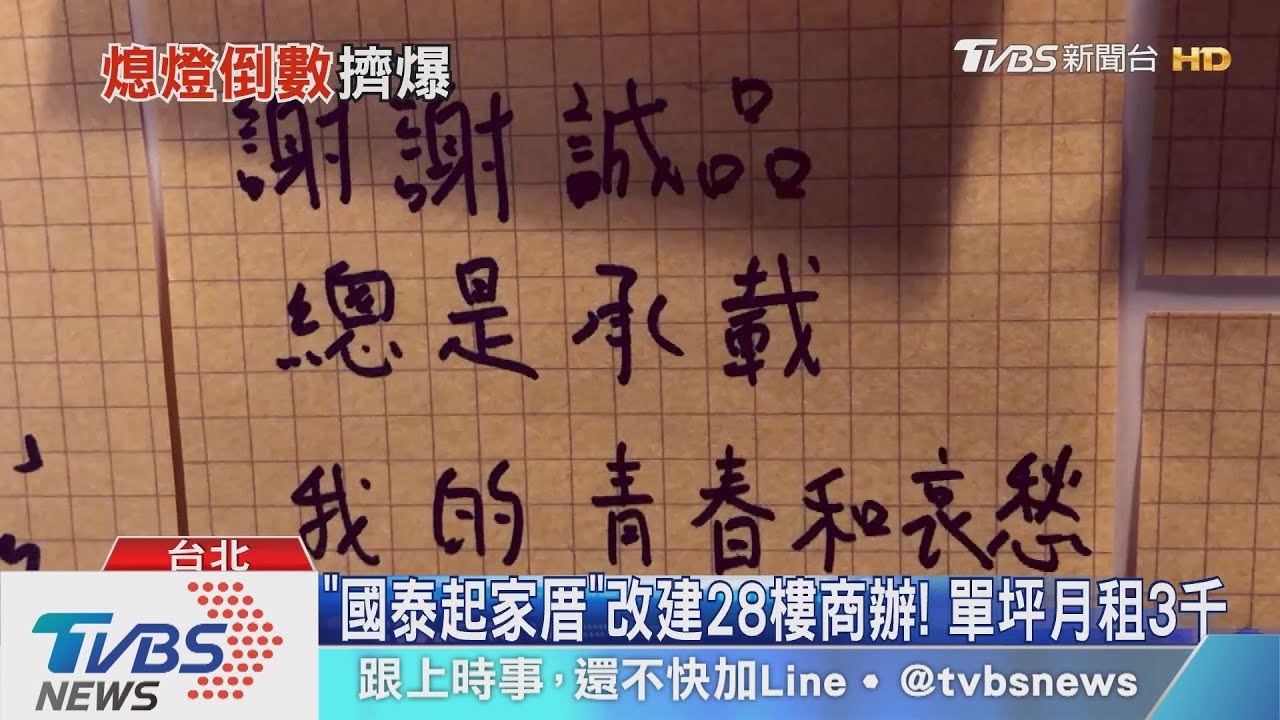 熄燈倒數擠爆
TVBS新聞台 HD
謝謝誠品
總是承載
我的青春和哀愁
台北
"國泰起家厝"改建28樓商辦! 單坪月租3千
TVBS NEWS
跟上時事,還不快加Line・@tvbsnews